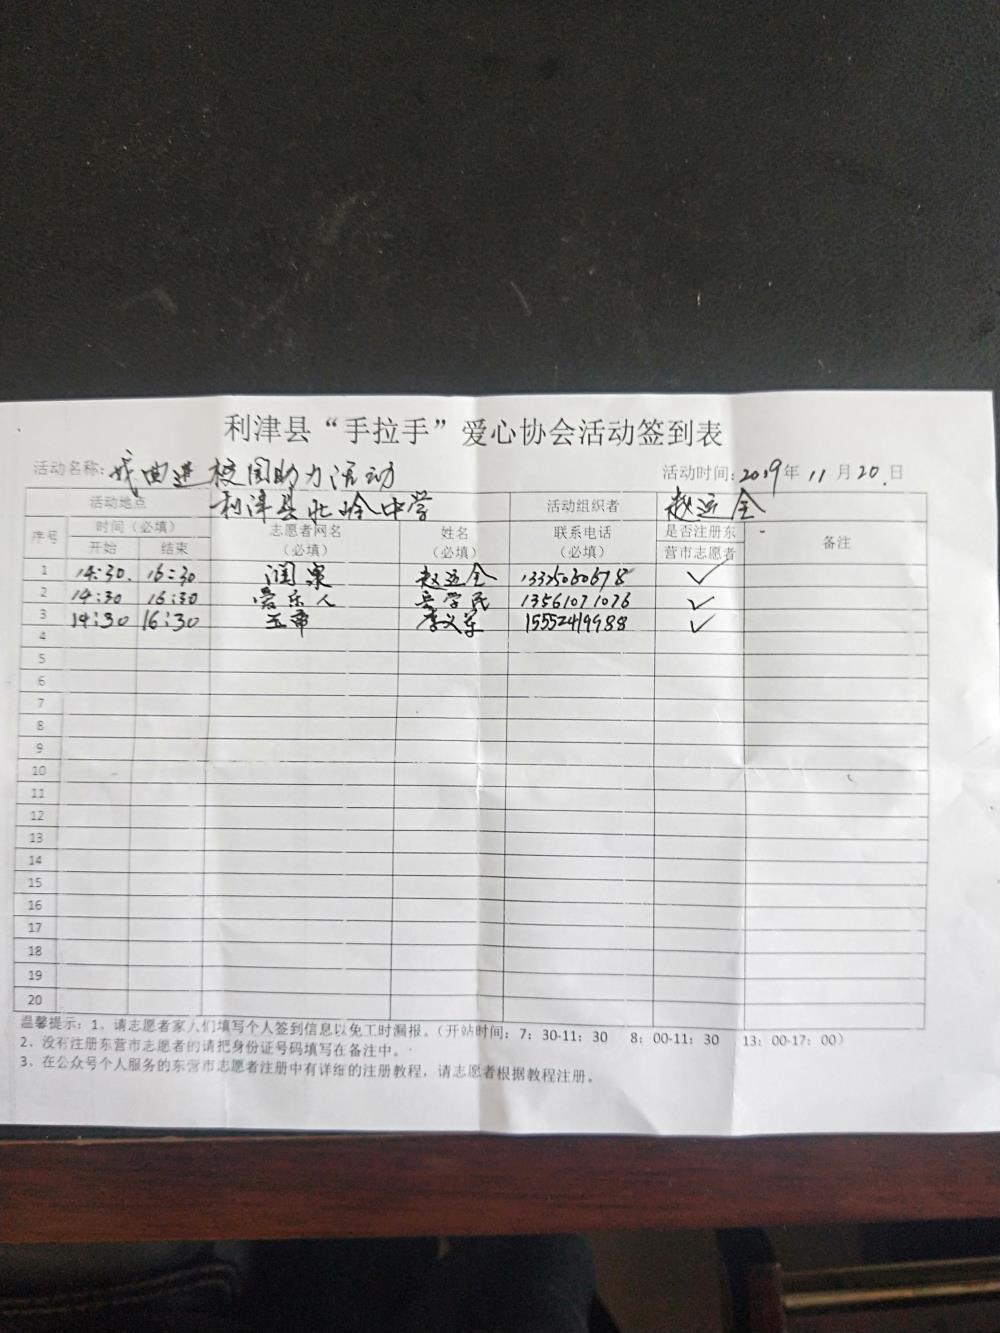 利津县“手拉手”爱心协会活动签到表
活动名称: 戏曲进校园助力活动 活动时间: 2019年 11月 20.日
活动地点 利津县北岭中学 活动组织者 赵运全
序号 时间（必填） 志愿者网名（必填） 姓名（必填） 联系电话（必填） 是否注册东营市志愿者 备注
开始 结束
1 14:30. 16:30 润泉 赵运全 13325060678 ✓
2 14:30 16:30 爱乐人 学民 13561071076 ✓
3 14:30 16:30 李义军 15552419988 ✓
4
5
6
7
8
9
10
11
12
13
14
15
16
17
18
19
20
温馨提示：1、请志愿者家人们填写个人签到信息以免工时漏报。（开站时间：7：30-11：30 8：00-11：30 13：00-17：00）
2、没有注册东营市志愿者的请把身份证号码填写在备注中。
3、在公众号个人服务的东营市志愿者注册中有详细的注册教程，请志愿者根据教程注册。